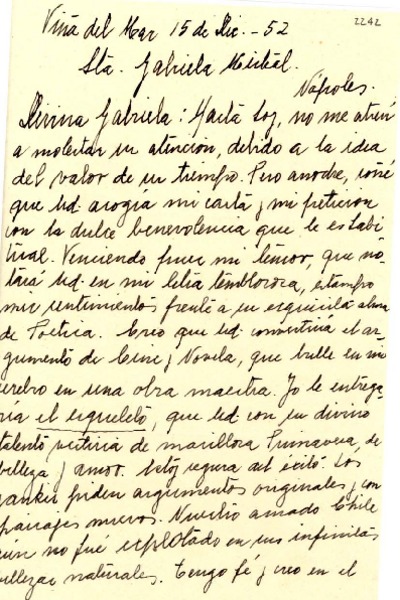 2242
Viña del Mar 15 de Dic. - 52
Sta. Gabriela Mistral.
Nápoles.
Divina Gabriela: Hasta hoy, no me atreví
a molestar su atención, debido a la idea
del valor de su tiempo. Pero anoche, soñé
que Ud. acogía mi carta y mi petición
con la dulce benevolencia que le es habi
tual. Venciendo pues mi temor, que no-
tará Ud. en mi letra temblorosa, estampo
mis sentimientos frente a su exquisita alma
de Poetisa. Creo que Ud. convertiría el ar-
gumento de Cine y Novela, que bulle en mi
cerebro en una obra maestra. Yo le entrega-
ría el esqueleto, que Ud con su divino
talento vestiría de marillosa Primavera, de
belleza y amor. Estoy segura del éxito. Los
yankis piden argumentos originales, con
paisajes nuevos. Nuestro amado Chile
aún no fué explotado en sus infinitas
bellezas naturales. Tengo fé y creo en el